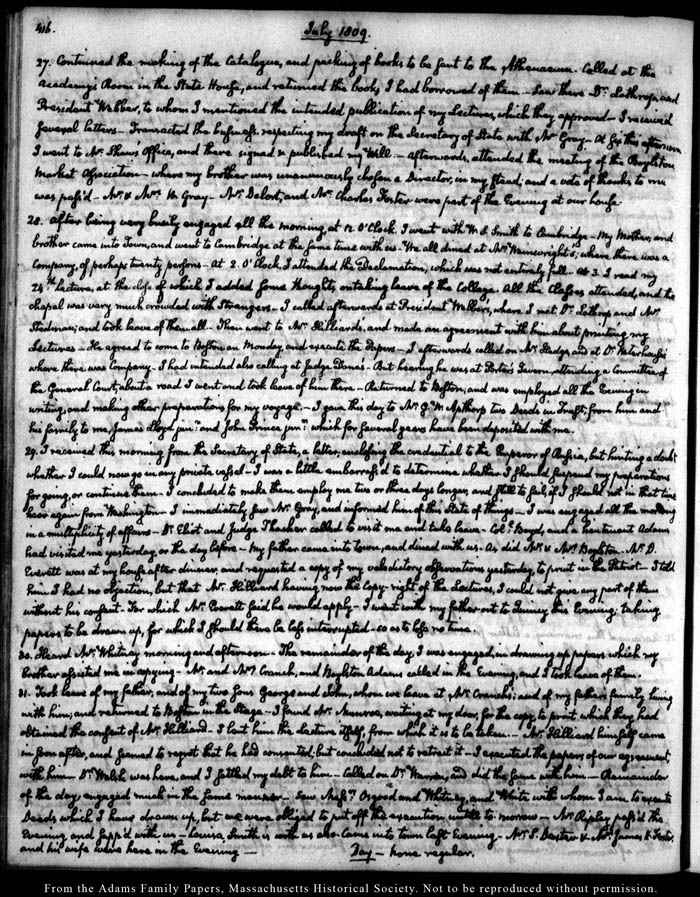 416.
July 1809.
27. Continued the making of the Catalogue, and packing of books to be sent to the Athenaeum. Called at the
Academy's Room in the State House, and returned the books I had borrowed of them. Saw there Dr. Lathrop, and
President Webber, to whom I mentioned the intended publication of my Lectures, which they approved — I received
several letters — Transacted the business, respecting my draft on the Secretary of State with Mr. Gray — At six this afternoon
I went to Mr. Shaw's Office, and there signed & published my Will — afterwards, attended the meeting of the Boylston
Market Association — where my brother was unanimously chosen a Director, in my stead; and a vote of thanks to me
was pass'd — Mr. & Mrs. W. Gray — Mr. and Mr. Charles Foster were part of the Evening at our house.
28. After being very busily engaged all the morning, at 12 O'Clock I went with W. S. Smith to Cambridge — My Mother, and
brother came into Town, and went to Cambridge at the same time with us. We all dined at Mrs. Wainwright's; where there was a
Company, of perhaps twenty persons — At 2. O'Clock, I attended the Declamation, which was not entirely full. At 3. I read my
24th Lecture, at the close of which I added some thoughts, on taking leave of the College. All the Classes attended, and the
chapel was very much crowded with Strangers — I called afterwards at President Webber's, where I met Dr. Lathrop and Mr.
Stedman; and took leave of them all — Then went to Mr. Hilliard's, and made an agreement with him about printing my
Lectures — He agreed to come to Boston on Monday, and execute the Papers — I afterwards called on Mr. Hedge, and at Dr. Waterhouse's
where there was Company — I had intended also calling at Judge Dana's — But hearing he was at Porter's Tavern attending a Committee of
the General Court, about a road I went and took leave of him there — Returned to Boston; and was employed all the Evening in
writing, and making other preparations for my voyage — I gave this day to Mr. G. W. Apthorp two Deeds in draft, from him and
his family to me, James Lloyd junr. and John junr. which for several years have been deposited with me.
29. I received this morning from the Secretary of State, a letter, enclosing the credential to the Emperor of Russia, but hinting a doubt
whether I could now go in any private vessel — I was a little embarrass'd to determine whether I should suspend my preparations
for going, or continue them — I concluded to make them employ me two or three days longer, and still to sail, if I should not in that time
hear again from Washington — I immediately saw Mr. Gray, and informed him of this state of things — I was engaged all the morning
in a multiplicity of affairs — Dr. Eliot and Judge Thacher called to visit me and take leave — Coll. Boyd, and a lieutenant Adams
had visited me yesterday, or the day before — My father came into town, and dined with us. As did Mr. & Mrs. Boylston — Mr. D.
Everett was at my house after dinner, and requested a copy of my valedictory observations yesterday, to print in the Patriot — I told
him I had no objection, but that Mr. Hilliard having now the Copy-right of the Lectures, I could not give any part of them
without his consent — For which Mr. Everett said he would apply — I went with my father out to Quincy this Evening; taking
papers to be drawn up, for which I should there be less interrupted — so as to lose no time.
30. Heard Mr. Whitney morning and afternoon — The remainder of the day, I was engaged, in drawing up papers which my
brother assisted me in copying — Mr. and Mrs. Cranch, and Boylston Adams called in the Evening, and I took leave of them.
31. Took leave of my father, and of my two sons George and John, whom we leave at Mr. Cranch's; and of my father's family living
with him; and returned to Boston in the Stage — I found Mr. Munroe, waiting at my door, for the copy, to print which they had
obtained the consent of Mr. Hilliard — I lent him the Lecture itself, from which it is to be taken — Mr. Hilliard himself came
in soon after, and seemed to regret that he had consented, but concluded not to retract it — I executed the papers of our agreement
with him — Dr. Welsh was here, and I settled my debt to him — Called on Dr. Warren, and did the same with him — Remainder
of the day, engaged much in the same manner — Saw Messrs. Osgood and Whitney, and White with whom I am to execute
Deeds which I have drawn up, but we were obliged to put off the execution untill to-morrow — Mr. Ripley pass'd the
Evening and supp'd with us — Louisa Smith is with us also. Came into town last Evening — Mr. S. Dexter & Mr. James
and his wife were here in the Evening —
Day — none regular.
From the Adams Family Papers, Massachusetts Historical Society. Not to be reproduced without permission.